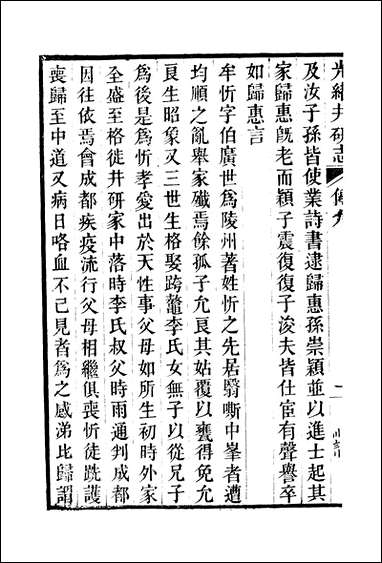 光緒井研志 傳九 二
及汝子孫皆使業詩書逮歸惠孫崇穎並以進士起其
家歸惠既老而穎子震復復子浚夫皆仕宦有聲譽卒
如歸惠言
牟忻字伯廣世為陵州著姓忻之先居騎嘶中峯者遭
均順之亂舉家殲焉餘孤子允良其姑覆以甕得免允
良生昭象又三世生格娶跨鼇李氏女無子以從兄子
為後是為忻孝愛出於天性事父母如所生初時外家
全盛至格徙井研家中落時李氏叔父時雨通判成都
因往依焉會成都疾疫流行父母相繼俱喪忻徒跣護
喪歸至中道又病日咯血不已見者為之感涕比歸謂